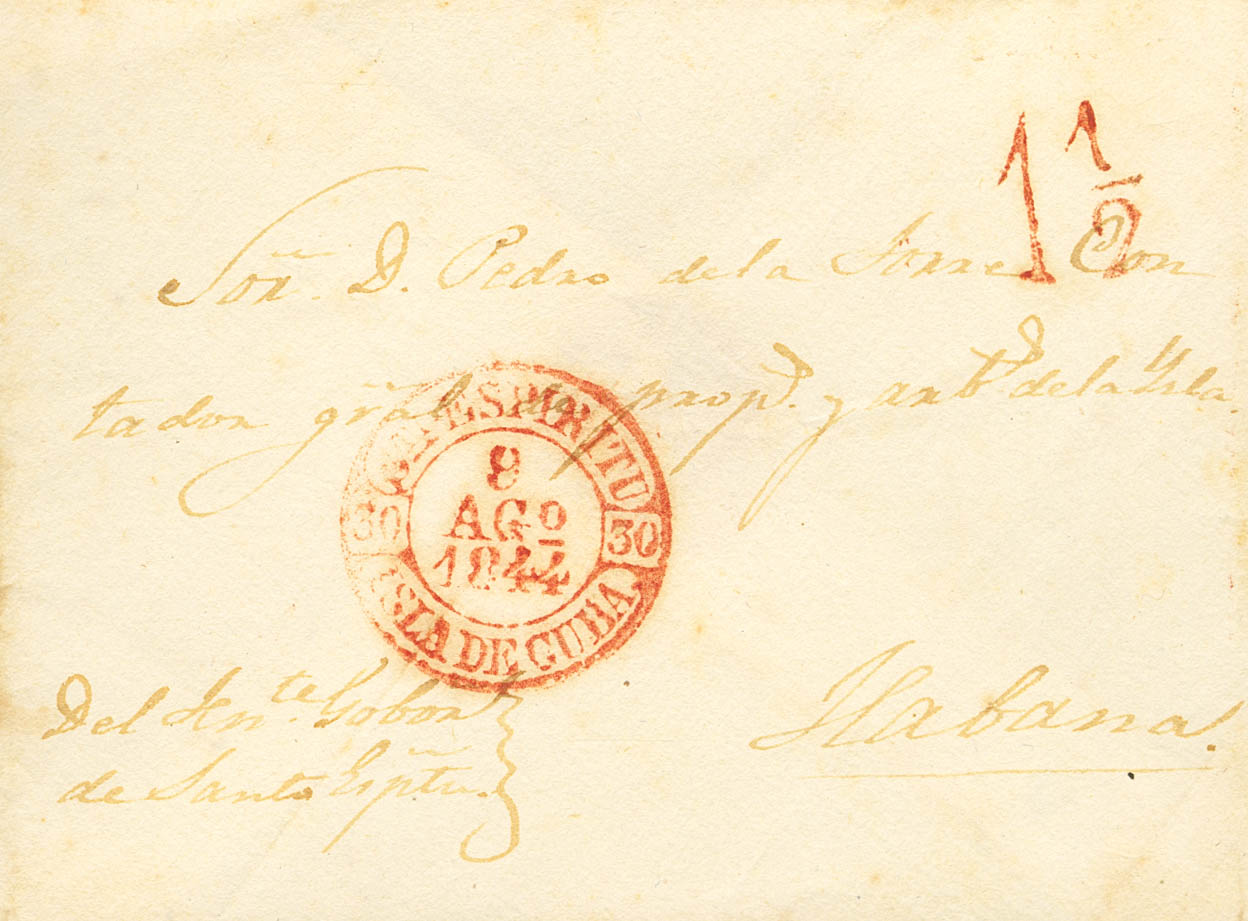 1 1/2
Sor. D. Pedro de la Torre Con
tador gral de prop.s y arb.s de la Ysla.
STI ESPIRITU
30
8
AGO
1844
30
ISLA DE CUBA
Del Ten.te Gobor.
de Santo Esptu.
Habana.